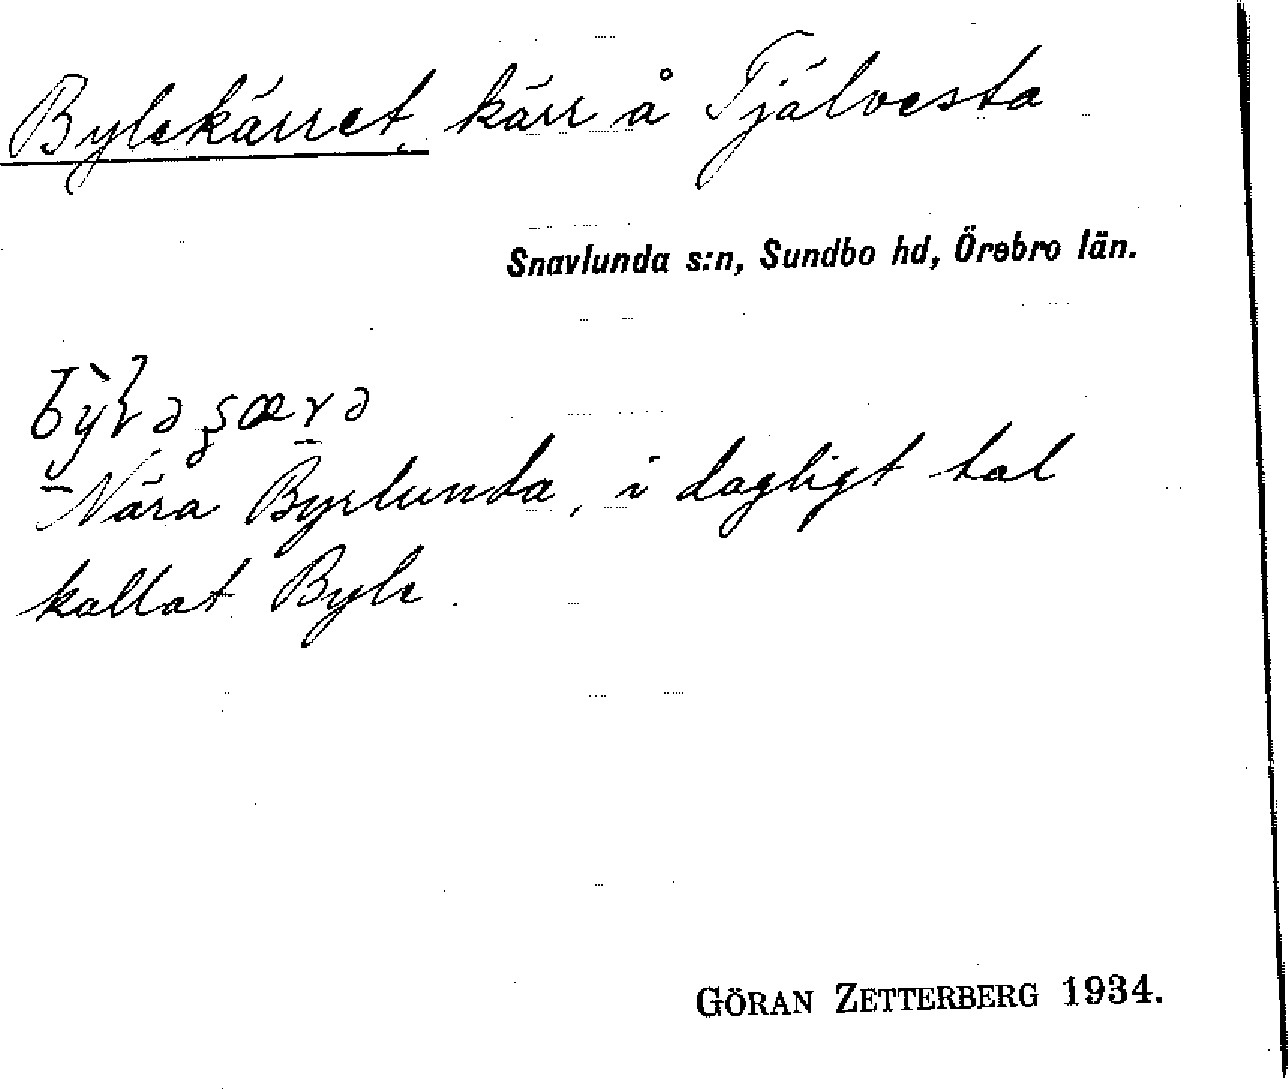 Bylekärret, kärr å Tjälvesta
Snavlunda s:n, Sundbo hd, Örebro län.
Nära Byrlunda, i dagligt tal
kallat Byle.
GÖRAN ZETTERBERG 1934.